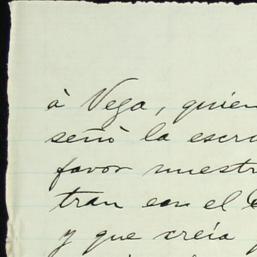 à Vega, quien
señó la escri
favor nuestr
tran con el C
y que creía